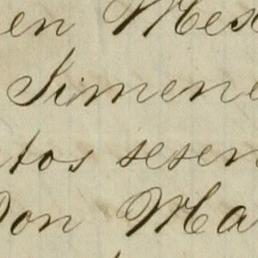 en Mes
Jimene
tos sesen
Don Ma